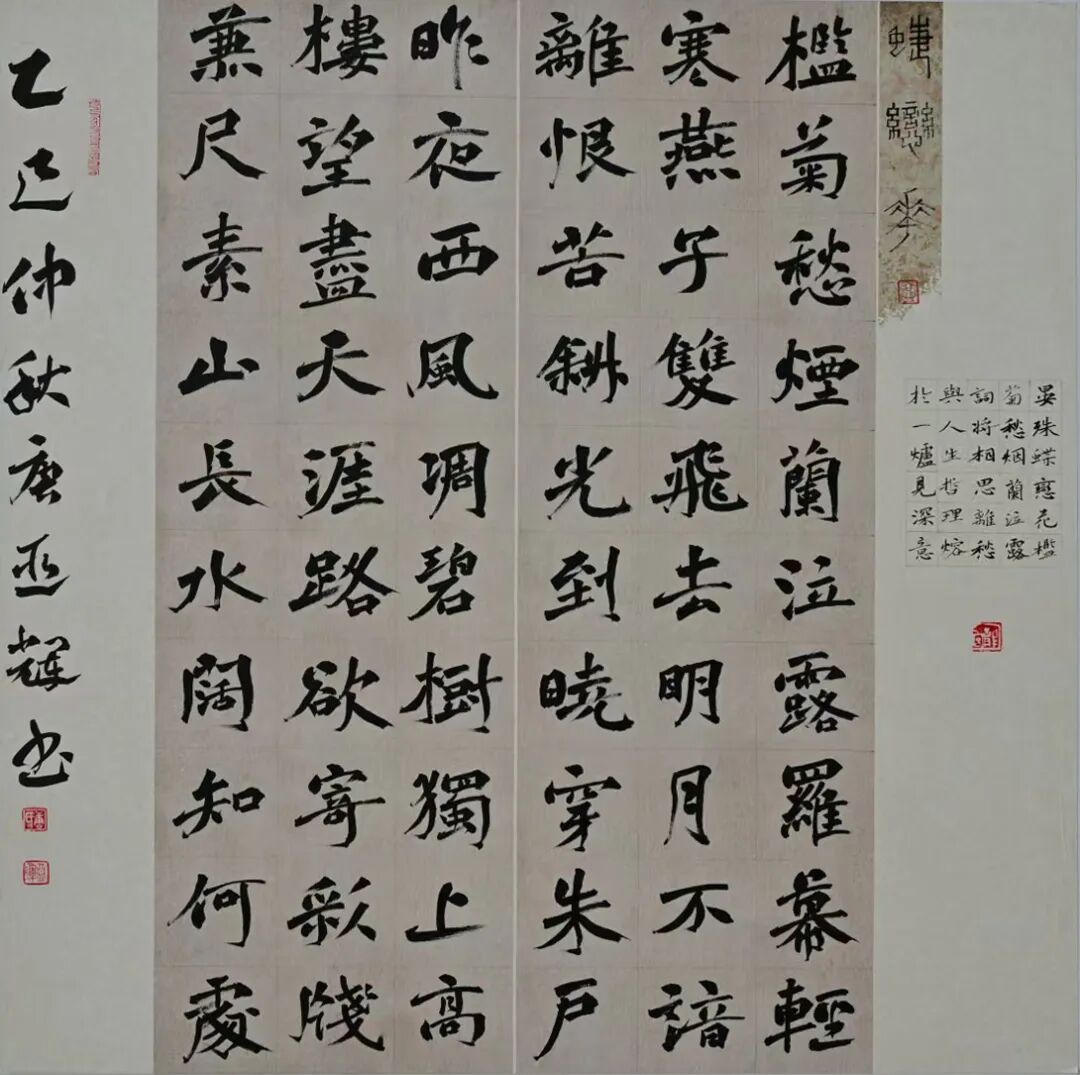 蝶戀花
晏殊蝶戀花檻
菊愁烟蘭泣露
詞将相思離愁
與人生哲理熔
於一爐見深意
檻菊愁煙蘭泣露羅幕輕
寒燕子雙飛去明月不諳
離恨苦斜光到曉穿朱戶
昨夜西風凋碧樹獨上高
樓望盡天涯路欲寄彩牋
兼尺素山長水闊知何處
乙巳仲秋唐亚輝书